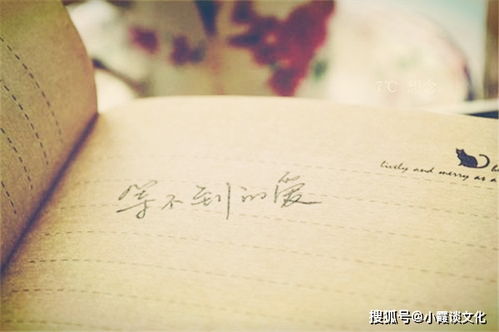 7℃ 想念
lively and merry as a
等不到的爱
搜狐号@小霞谈文化